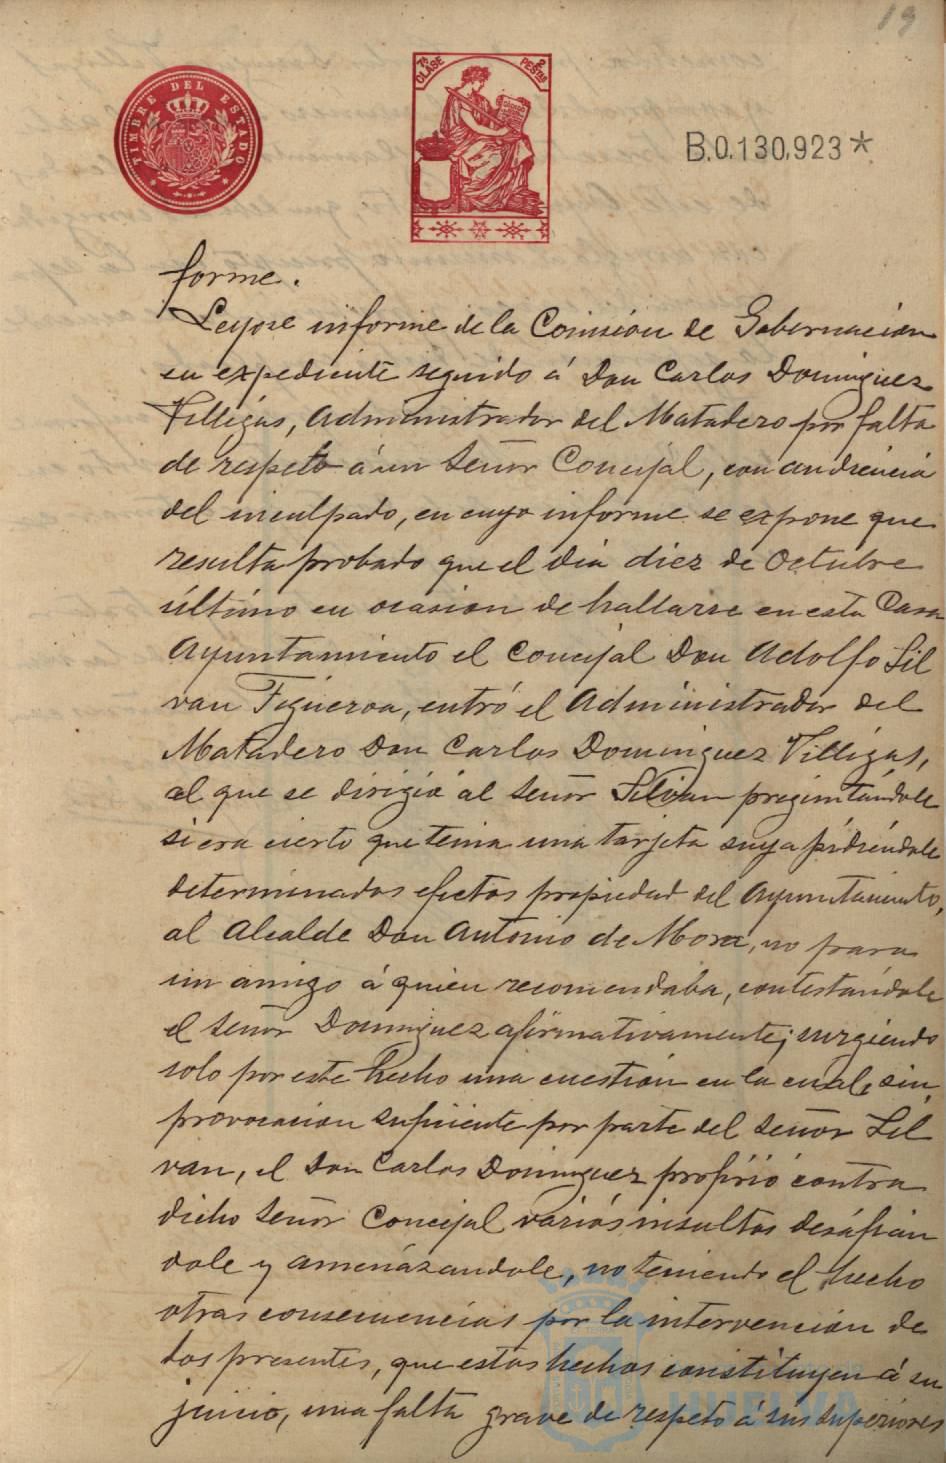 19
TIMBRE DEL ESTADO
7ª CLASE 2 PESETAS
B.0.130,923*
forme.
Leyose informe de la Comisión de Gobernación
en expediente seguido á Don Carlos Dominguez
Villigas, Administrador del Matadero por falta
de respeto á un Señor Concejal, con audiencia
del inculpado, en cuyo informe se expone que
resulta probado que el dia diez de Octubre
último en ocasion de hallarse en esta Casa
Ayuntamiento el Concejal Don Adolfo Sil
van Figueroa, entró el Administrador del
Matadero Don Carlos Dominguez Villigas,
al que se dirigió al Señor Silvan preguntándole
si era cierto que tenia una tarjeta suya pidiéndole
determinados efectos propiedad del Ayuntamiento,
al Alcalde Don Antonio de Mora, no para
un amigo á quien recomendaba, contestándole
el Señor Dominguez afirmativamente; surgiendo
solo por este hecho una cuestión en la cual, sin
provocacion suficiente por parte del Señor Sil
van, el Don Carlos Dominguez profirió contra
dicho Señor Concejal varios insultos desafián
dole y amenázandole, no teniendo el hecho
otras consecuencias por la intervención de
los presentes, que estos hechos constituyen á su
juicio, una falta grave de respeto á sus superiores
HUELVA